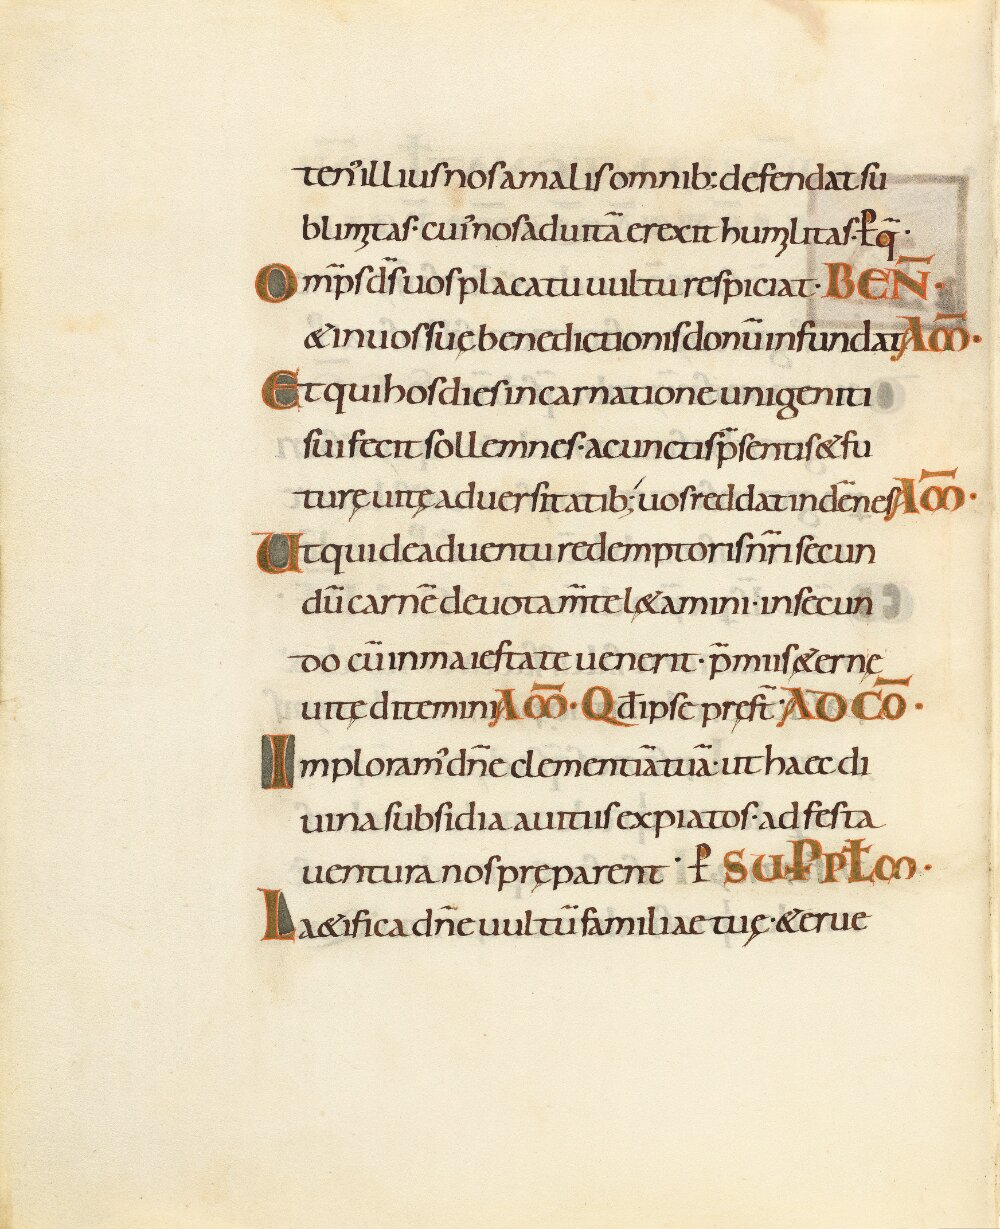 ten᷒ illius nos a malis omnib; defendat su
blimitas· cui᷒ nos ad uitā erexit humilitas· P̄ q̄·
Om̄ps d̄s uos placatu uultu respiciat· BEN̄·
& in uos suę benedictionis donū infundat AM̄·
Et qui hos dies incarnatione unigeniti
sui fecit sollemnes· a cunctis p̄sentis & fu
turę uitę aduersitatib; uos reddat indēnes AM̄·
Ut qui de aduentu redemptoris nr̄i secun
dū carnē deuota m̄te l&amini· in secun
do cū in maiestate uenerit· p̄miis &ernę
uitę ditemini AM̄· Qd̄ ipse pręst̄· AD CŌ·
Imploram᷒ dn̄e clementiā tuā· ut haec di
uina subsidia a uitiis expiatos· ad festa
uentura nos pręparent· P̄ SUP PPŁM·
La&ifica dn̄e uultū familiae tuę· & erue